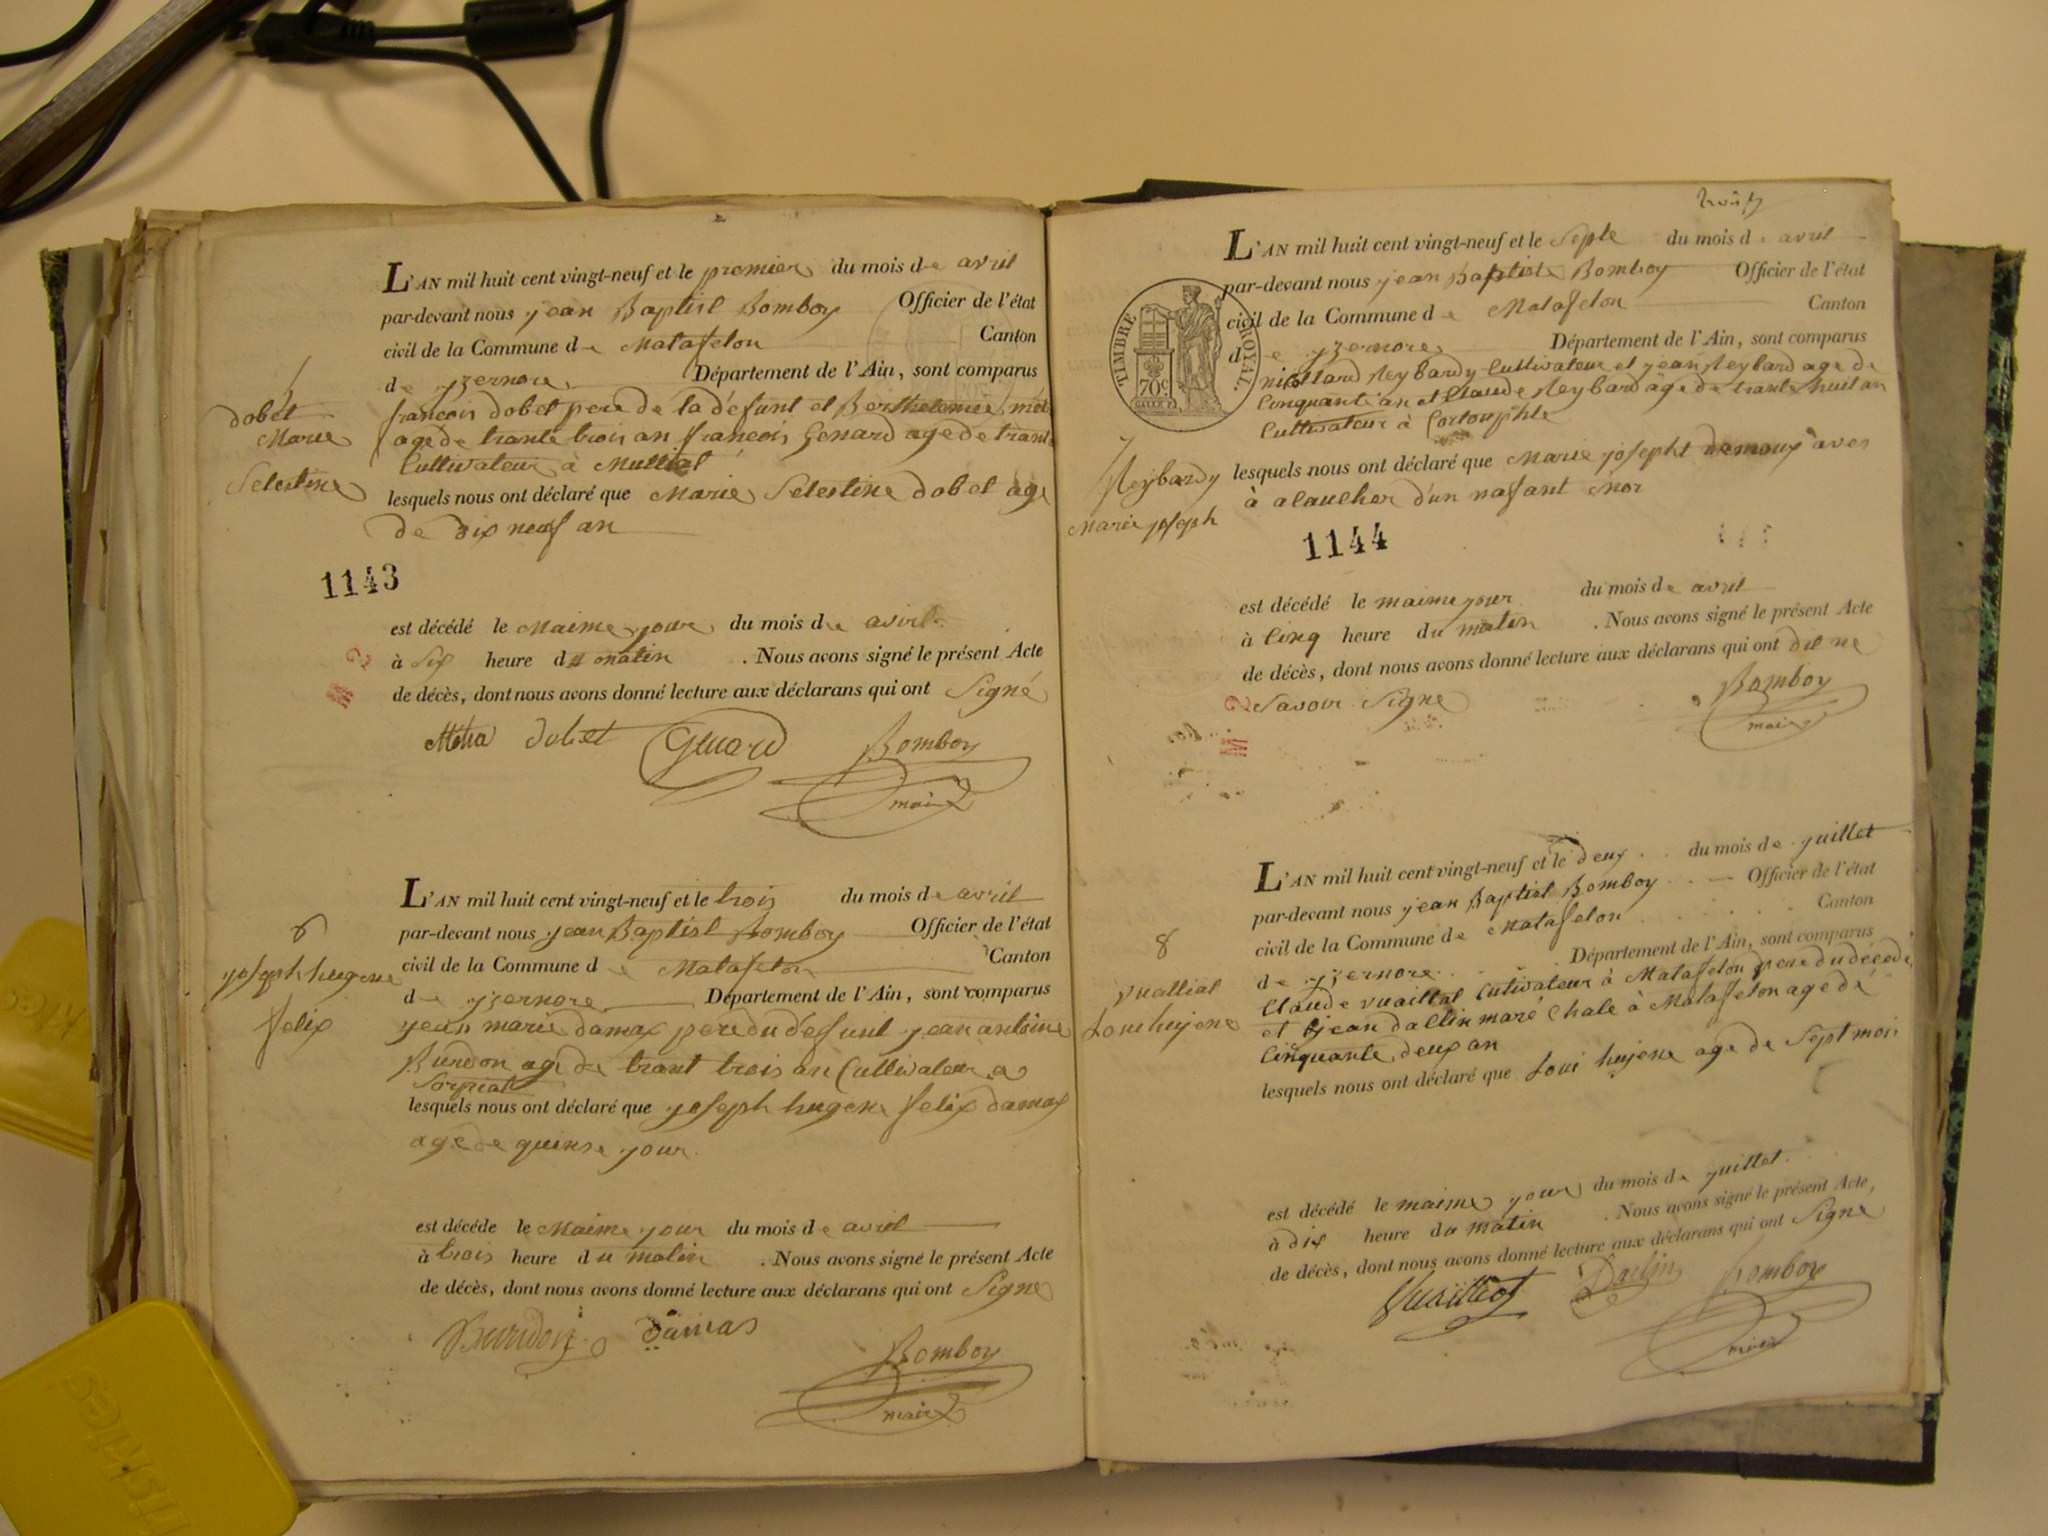 L'AN mil huit cent vingt-neuf et le premier du mois de avril
par-devant nous jean Baptist Bomboy Officier de l'état
civil de la Commune de Matafelon Canton
de yzernore Département de l'Ain, sont comparus
francois dobet pere de la défunt et Berthelemie
age de trante trois an francois Genard age de trante
Cultivateur à
lesquels nous ont déclaré que Marie Selestine dobet age
de dix neuf an
dobet
Marie
Selestine
1143
est décédé le Maime jour du mois de avril
à six heure du matin . Nous avons signé le présent Acte
de décès, dont nous avons donné lecture aux déclarans qui ont Signé
dobet Genard Bomboy
maire
L'AN mil huit cent vingt-neuf et le trois du mois de avril
par-devant nous jean Baptist Bomboy Officier de l'état
civil de la Commune de Matafelon Canton
de yzernore Département de l'Ain, sont comparus
jean marie damax pere du défunt jean antoine
Burdon age de trant trois an Cultivateur a
lesquels nous ont déclaré que joseph hugene felix damax
age de quinse jour
6
joseph hugene
felix
est décéde le Maime jour du mois de avril
à trois heure du matin . Nous avons signé le présent Acte
de décès, dont nous avons donné lecture aux déclarans qui ont Signe
Damas
Bomboy
maire
L'AN mil huit cent vingt-neuf et le Septe du mois de avril
par-devant nous jean Baptiste Bomboy Officier de l'état
civil de la Commune de Matafelon Canton
de yzernore Département de l'Ain, sont comparus
Reybardy Cultivateur et jean Reybard age de
Cinquante an et Claude Reybard age de trante huit an
Cultivateur à
lesquels nous ont déclaré que Marie josepht demoux aves
à alaucher d'un nafant Mor
TIMBRE ROYAL.
70c
7
Reybardy
Marie joseph
1144
est décédé le maime jour du mois de avril
à Cinq heure du matin . Nous avons signé le présent Acte
de décès, dont nous avons donné lecture aux déclarans qui ont dit ne
Savoir Signe
Bomboy
maire
L'AN mil huit cent vingt-neuf et le deux du mois de juillet
par-devant nous jean Baptist Bomboy Officier de l'état
civil de la Commune de Matafelon Canton
de yzernore Département de l'Ain, sont comparus
Claude vuaillat Cutivateur à Matafelon pere du décédé
et jean dallin maré Chale à Matafelon age de
Cinquante deux an
lesquels nous ont déclaré que Loui hujene age de Sept mois
8
vualliat
Loui hujene
est décédé le maime jour du mois de juillet
à dix heure du matin . Nous avons signé le présent Acte,
de décès, dont nous avons donné lecture aux déclarans qui ont Signe
Dallin Bomboy
maire